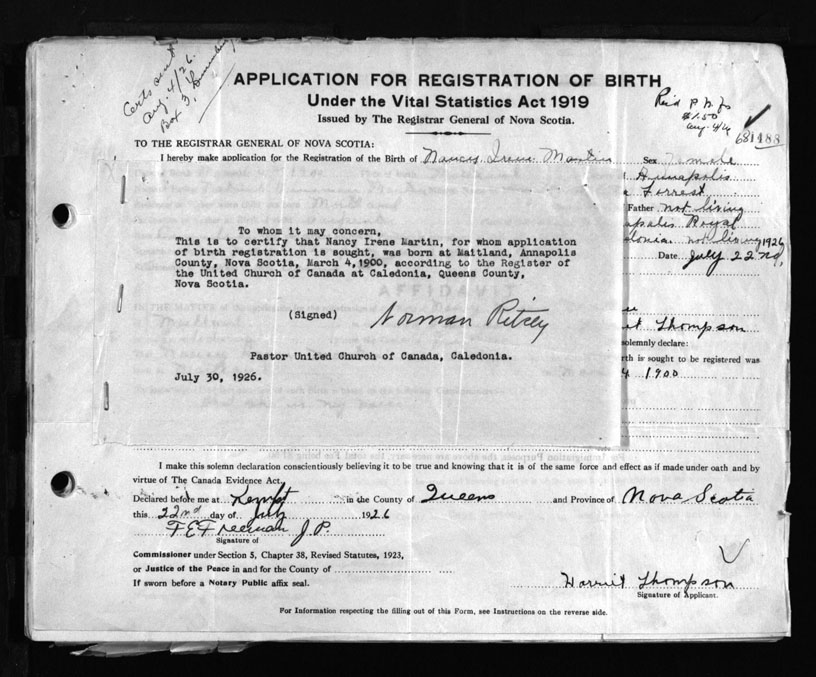 Certs sent
Aug. 4/26.
Box 3, Lunenburg
APPLICATION FOR REGISTRATION OF BIRTH
Under the Vital Statistics Act 1919
Issued by The Registrar General of Nova Scotia.
$1.50
Aug. 4/26
681188
TO THE REGISTRAR GENERAL OF NOVA SCOTIA:
I hereby make application for the Registration of the Birth of Nancy Irene Martin Sex Female
Annapolis
Forrest
Father not living
Royal
not living 1926
Date July 22nd,
To whom it may concern,
This is to certify that Nancy Irene Martin, for whom application
of birth registration is sought, was born at Maitland, Annapolis
County, Nova Scotia, March 4,1900, according to the Register of
the United Church of Canada at Caledonia, Queens County,
Nova Scotia.
AFFIDAVIT
(Signed) Norman Ritcey
Pastor United Church of Canada, Caledonia.
July 30, 1926.
Thompson
solemnly declare:
rth is sought to be registered was
4 1900
I make this solemn declaration conscientiously believing it to be true and knowing that it is of the same force and effect as if made under oath and by
virtue of The Canada Evidence Act.
Declared before me at Kempt in the County of Queens and Province of Nova Scotia
this 22nd day of July 1926
F E Freeman J.P.
Signature of
Commissioner under Section 5, Chapter 38, Revised Statutes, 1923,
or Justice of the Peace in and for the County of
If sworn before a Notary Public affix seal.
Harriet Thompson
Signature of Applicant.
For Information respecting the filling out of this Form, see Instructions on the reverse side.